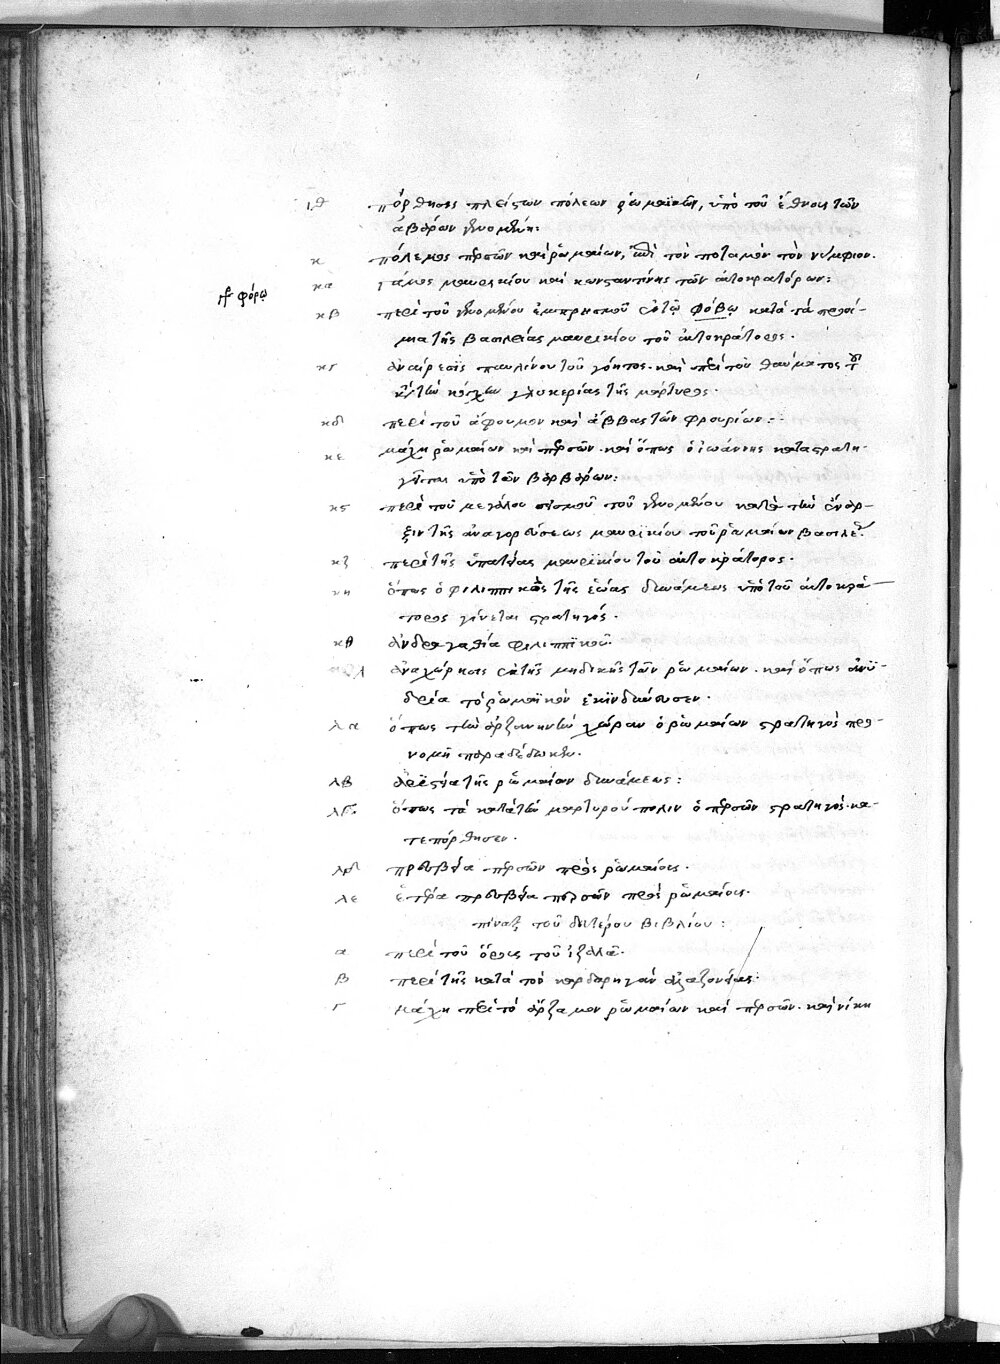 ιθ πόρθησις πλείστων πόλεων ῥωμαϊκῶν, ὑπὸ τοῦ ἔθνους τῶν
ἀβάρων γενομένη:
κ πόλεμος περσῶν καὶ ῥωμαίων, ἐπὶ τὸν ποταμὸν τὸν νύμφιον.
κα γάμος μαυρικίου καὶ κωνσταντίνης τῶν αὐτοκρατόρων:
φόρῳ
κβ περὶ τοῦ γενομένου ἐμπρησμοῦ ἐν τῷ φόβῳ κατὰ τὰ προοί-
μια τῆς βασιλείας μαυρικίου τοῦ αὐτοκράτορος.
κγ ἀναίρεσις παυλίνου τοῦ γόητος. καὶ περὶ τοῦ θαύματος
τῆς μάρτυρος γλυκερίας
κδ περὶ τοῦ ἀφουμὼν καὶ ἄββας τῶν φρουρίων:
κε μάχη ῥωμαίων καὶ περσῶν. καὶ ὅπως ὁ ἰωάννης καταστρατη-
γεῖται ὑπὸ τῶν βαρβάρων:
κς περὶ τοῦ μεγάλου σεισμοῦ τοῦ γενομένου κατὰ τὴν ἔναρ-
ξιν τῆς ἀναγορεύσεως μαυρικίου τοῦ ῥωμαίων βασιλέως
κζ περὶ τῆς ὑπατείας μαυρικίου τοῦ αὐτοκράτορος.
κη ὅπως ὁ φιλιππικὸς τῆς ἑῴας δυνάμεως ὑπὸ τοῦ αὐτοκρά-
τορος γίνεται στρατηγός.
κθ ἀνδραγαθία φιλιππικοῦ
λ ἀναχώρησις ἐκ τῆς μηδικῆς τῶν ῥωμαίων. καὶ ὅπως ἀνυ-
δρία τὸ ῥωμαϊκὸν ἐκινδύνευσεν.
λα ὅπως τὴν ἀρζανηνὴν χώραν ὁ ῥωμαίων στρατηγὸς προ-
νομῇ παραδέδωκεν.
λβ ἀριστεία τῆς ῥωμαίων δυνάμεως:
λγ ὅπως τὰ κατὰ τὴν μαρτυρού πολιν ὁ περσῶν στρατηγὸς κα-
τεπόρθησεν.
λδ πρεσβεία περσῶν πρὸς ῥωμαίους.
λε ἑτέρα πρεσβεία περσῶν πρὸς ῥωμαίους.
πίναξ τοῦ δευτέρου βιβλίου:
α περὶ τοῦ ὄρους τοῦ ἰζαλᾶ.
β περὶ τῆς κατὰ τὸν καρδαρηγὰν ἀλαζονείας:
γ μάχη περὶ τὸ ἀρζαμον ῥωμαίων καὶ περσῶν. καὶ νίκη